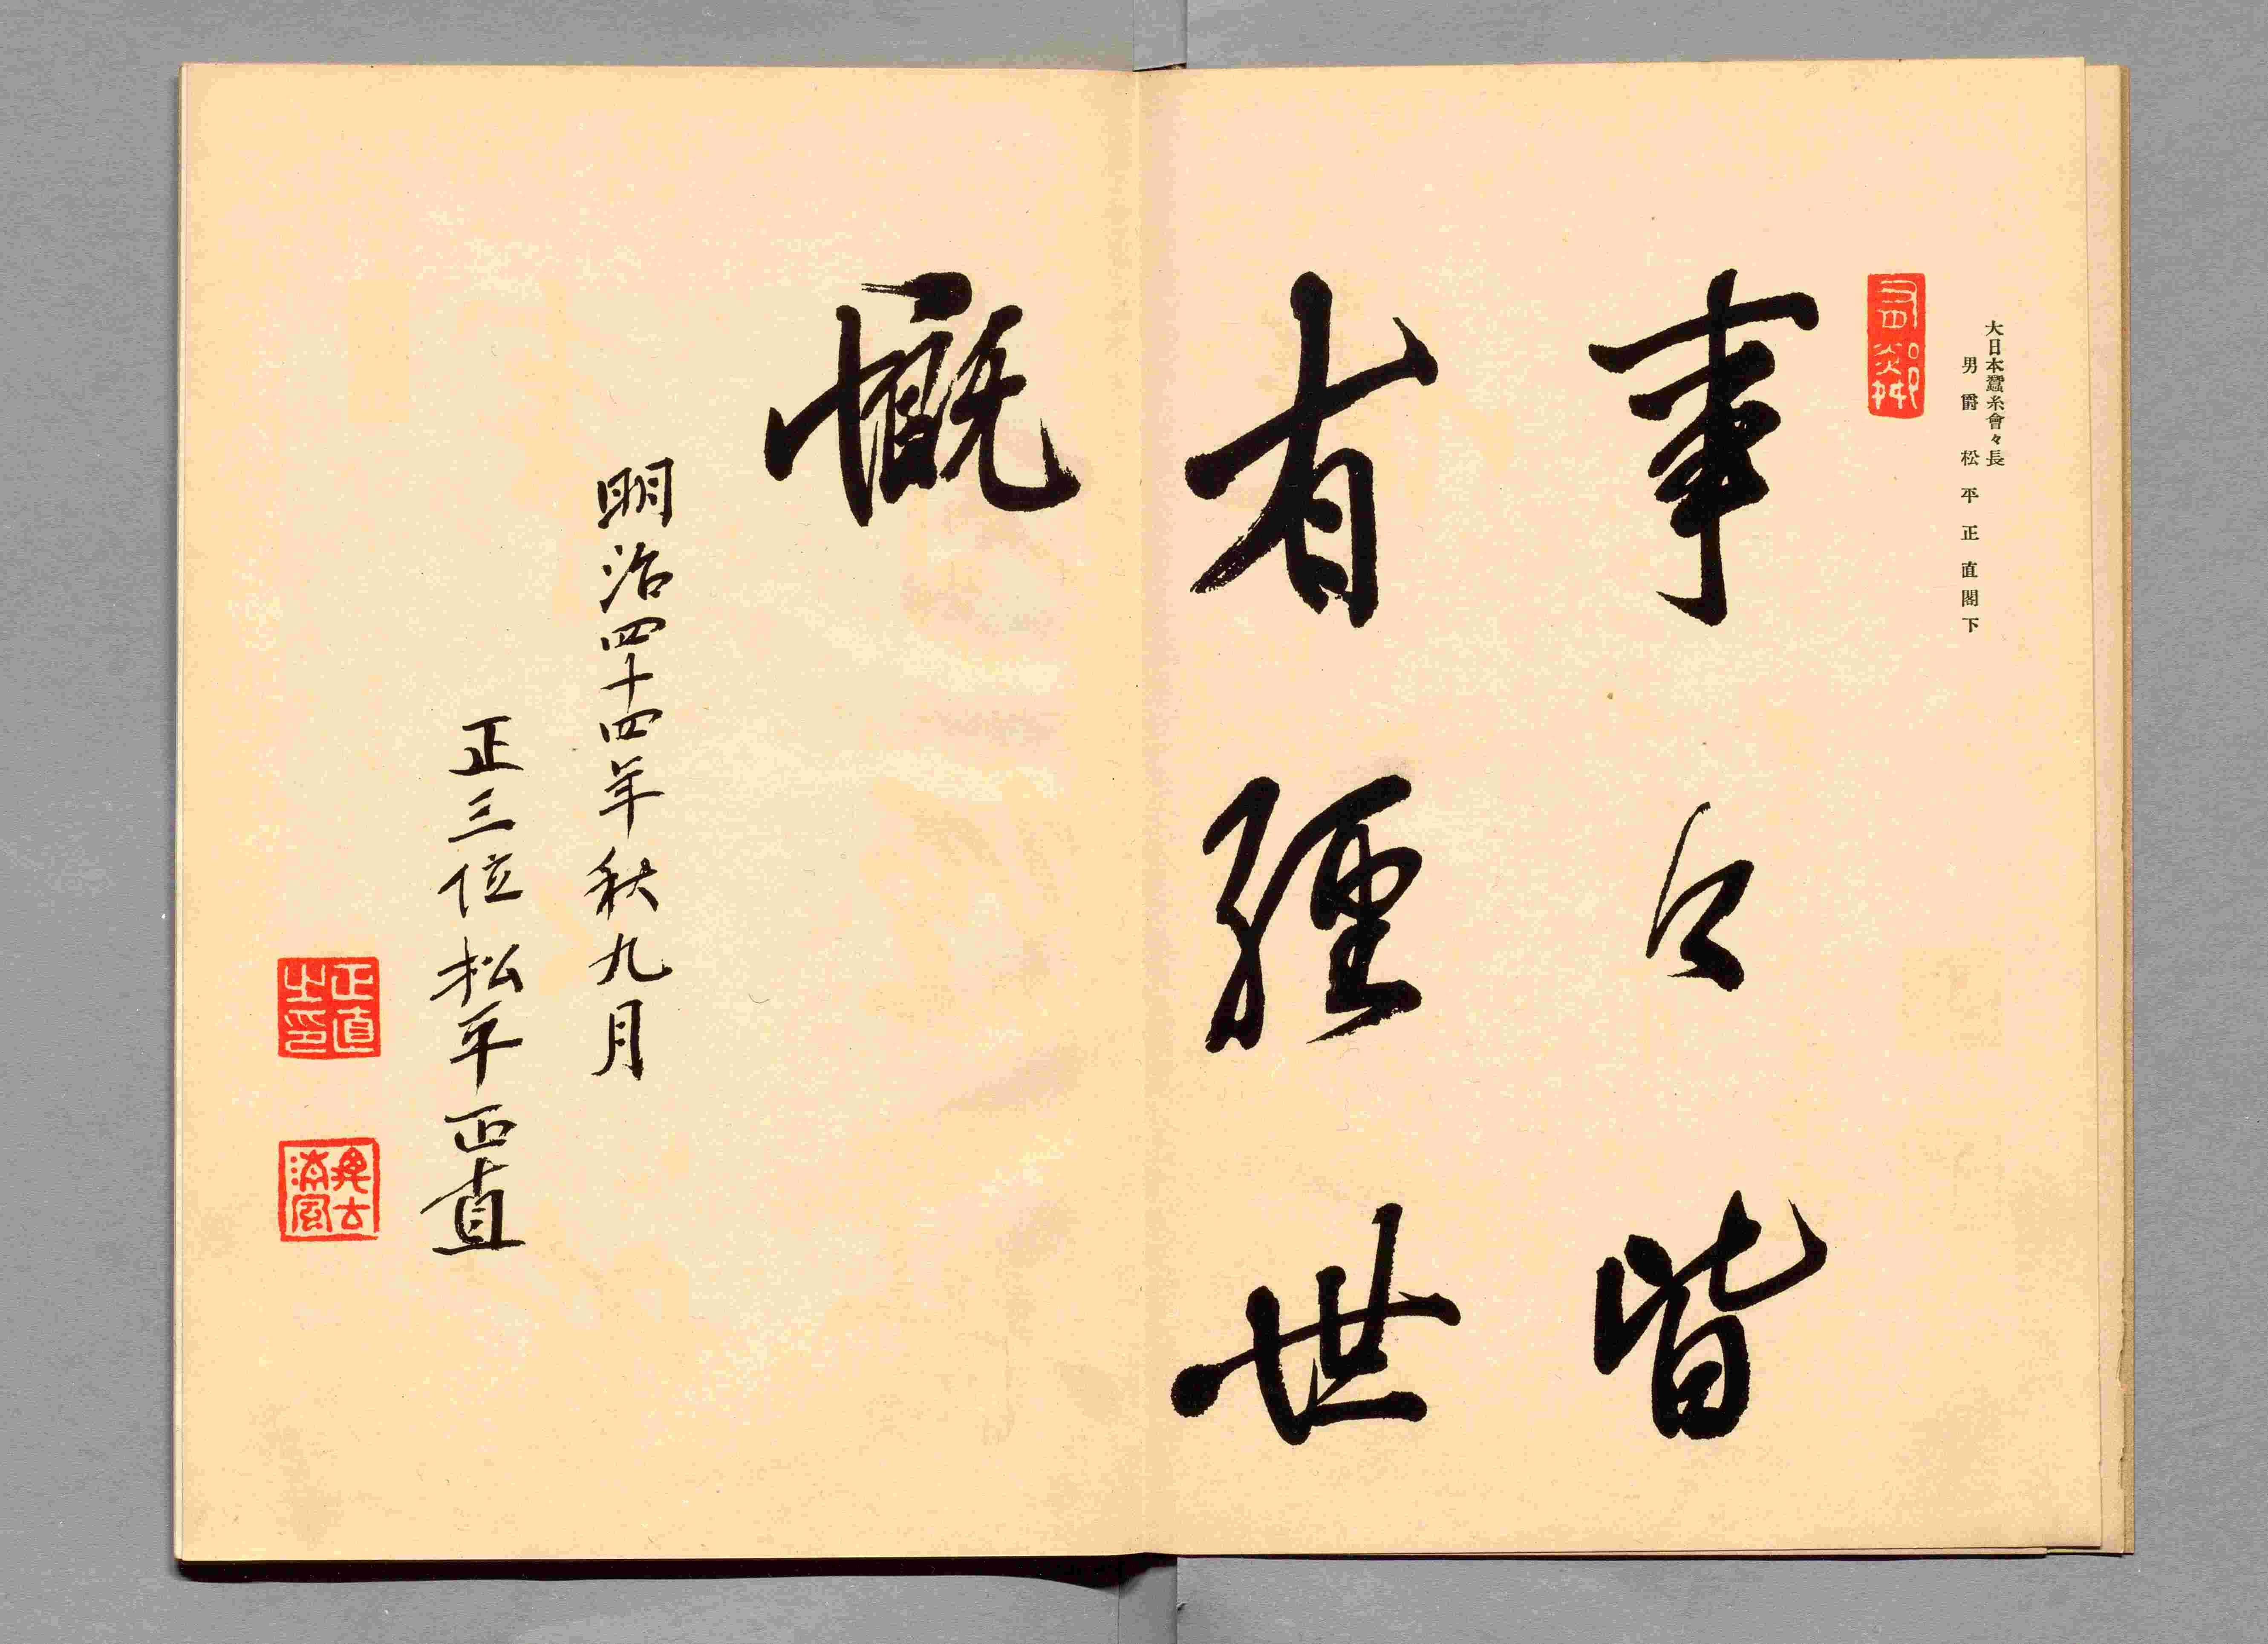 大日本蠶糸會々長
男爵松平正直閣下
事々皆
有經世
慨
明治四十四年秋九月
正三位松平正直
正直之印